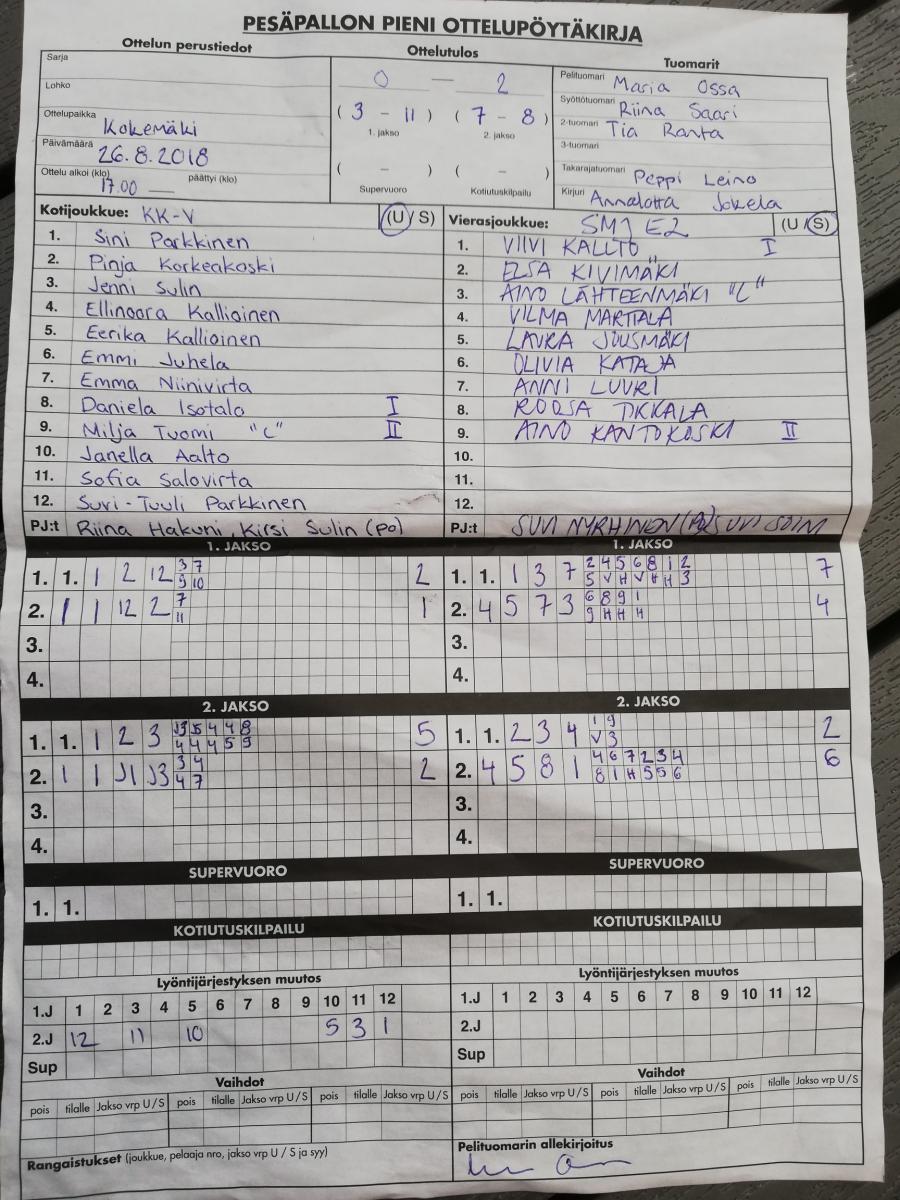 PESÄPALLON PIENI OTTELUPÖYTÄKIRJA
Ottelun perustiedot
Sarja
Lohko
Ottelupaikka Kokemäki
Päivämäärä 26.8.2018
Ottelu alkoi (klo) 17.00 päättyi (klo)
Ottelutulos
0 — 2
(3 - 11) (7 - 8)
1. jakso 2. jakso
( - ) ( - )
Supervuoro Kotiutuskilpailu
Tuomarit
Pelituomari Maria Ossa
Syöttötuomari Riina Saari
2-tuomari Tia Ranta
3-tuomari
Takarajatuomari Peppi Leino
Kirjuri Annalotta Jokela
Kotijoukkue: KK-V (U/S)
1. Sini Parkkinen
2. Pinja Korkeakoski
3. Jenni Sulin
4. Ellinoora Kallioinen
5. Eerika Kallioinen
6. Emmi Juhela
7. Emma Niinivirta
8. Daniela Isotalo I
9. Milja Tuomi "C" II
10. Janella Aalto
11. Sofia Salovirta
12. Suvi-Tuuli Parkkinen
PJ:t Riina Hakuni Kirsi Sulin (po)
Vierasjoukkue: SMJ E2 (U/S)
1. VIIVI KALLTO I
2. ELSA KIVIMÄKI
3. AINO LÄHTEENMÄKI "C"
4. VILMA MARTTALA
5. LAURA JUUSMÄKI
6. OLIVIA KATAJA
7. ANNI LUURI
8. ROOSA TIKKALA
9. AINO KANTOKOSKI II
10.
11.
12.
PJ:t SUVI
1. JAKSO
1. 1. 1 2 12 3 7 2
9 10
2. 1 1 12 2 7 1
11
3.
4.
1. JAKSO
1. 1. 1 3 7 2 4 5 6 8 1 2 7
5 V H V H H 3
2. 4 5 7 3 6 8 9 1 4
9 H H H
3.
4.
2. JAKSO
1. 1. 1 2 3 J3 5 4 4 8 5
4 4 4 5 9
2. 1 1 J1 J3 3 4 2
4 7
3.
4.
2. JAKSO
1. 1. 2 3 4 1 9 2
V 3
2. 4 5 8 1 4 6 7 2 3 4 6
8 1 H 5 5 6
3.
4.
SUPERVUORO
1. 1.
SUPERVUORO
1. 1.
KOTIUTUSKILPAILU
KOTIUTUSKILPAILU
Lyöntijärjestyksen muutos
1.J 1 2 3 4 5 6 7 8 9 10 11 12
2.J 12 11 10 5 3 1
Sup
Lyöntijärjestyksen muutos
1.J 1 2 3 4 5 6 7 8 9 10 11 12
2.J
Sup
Vaihdot
pois tilalle Jakso vrp U/S pois tilalle Jakso vrp U/S pois tilalle Jakso vrp U/S
Vaihdot
pois tilalle Jakso vrp U/S pois tilalle Jakso vrp U/S pois tilalle Jakso vrp U/S
Rangaistukset (joukkue, pelaaja nro, jakso vrp U / S ja syy)
Pelituomarin allekirjoitus